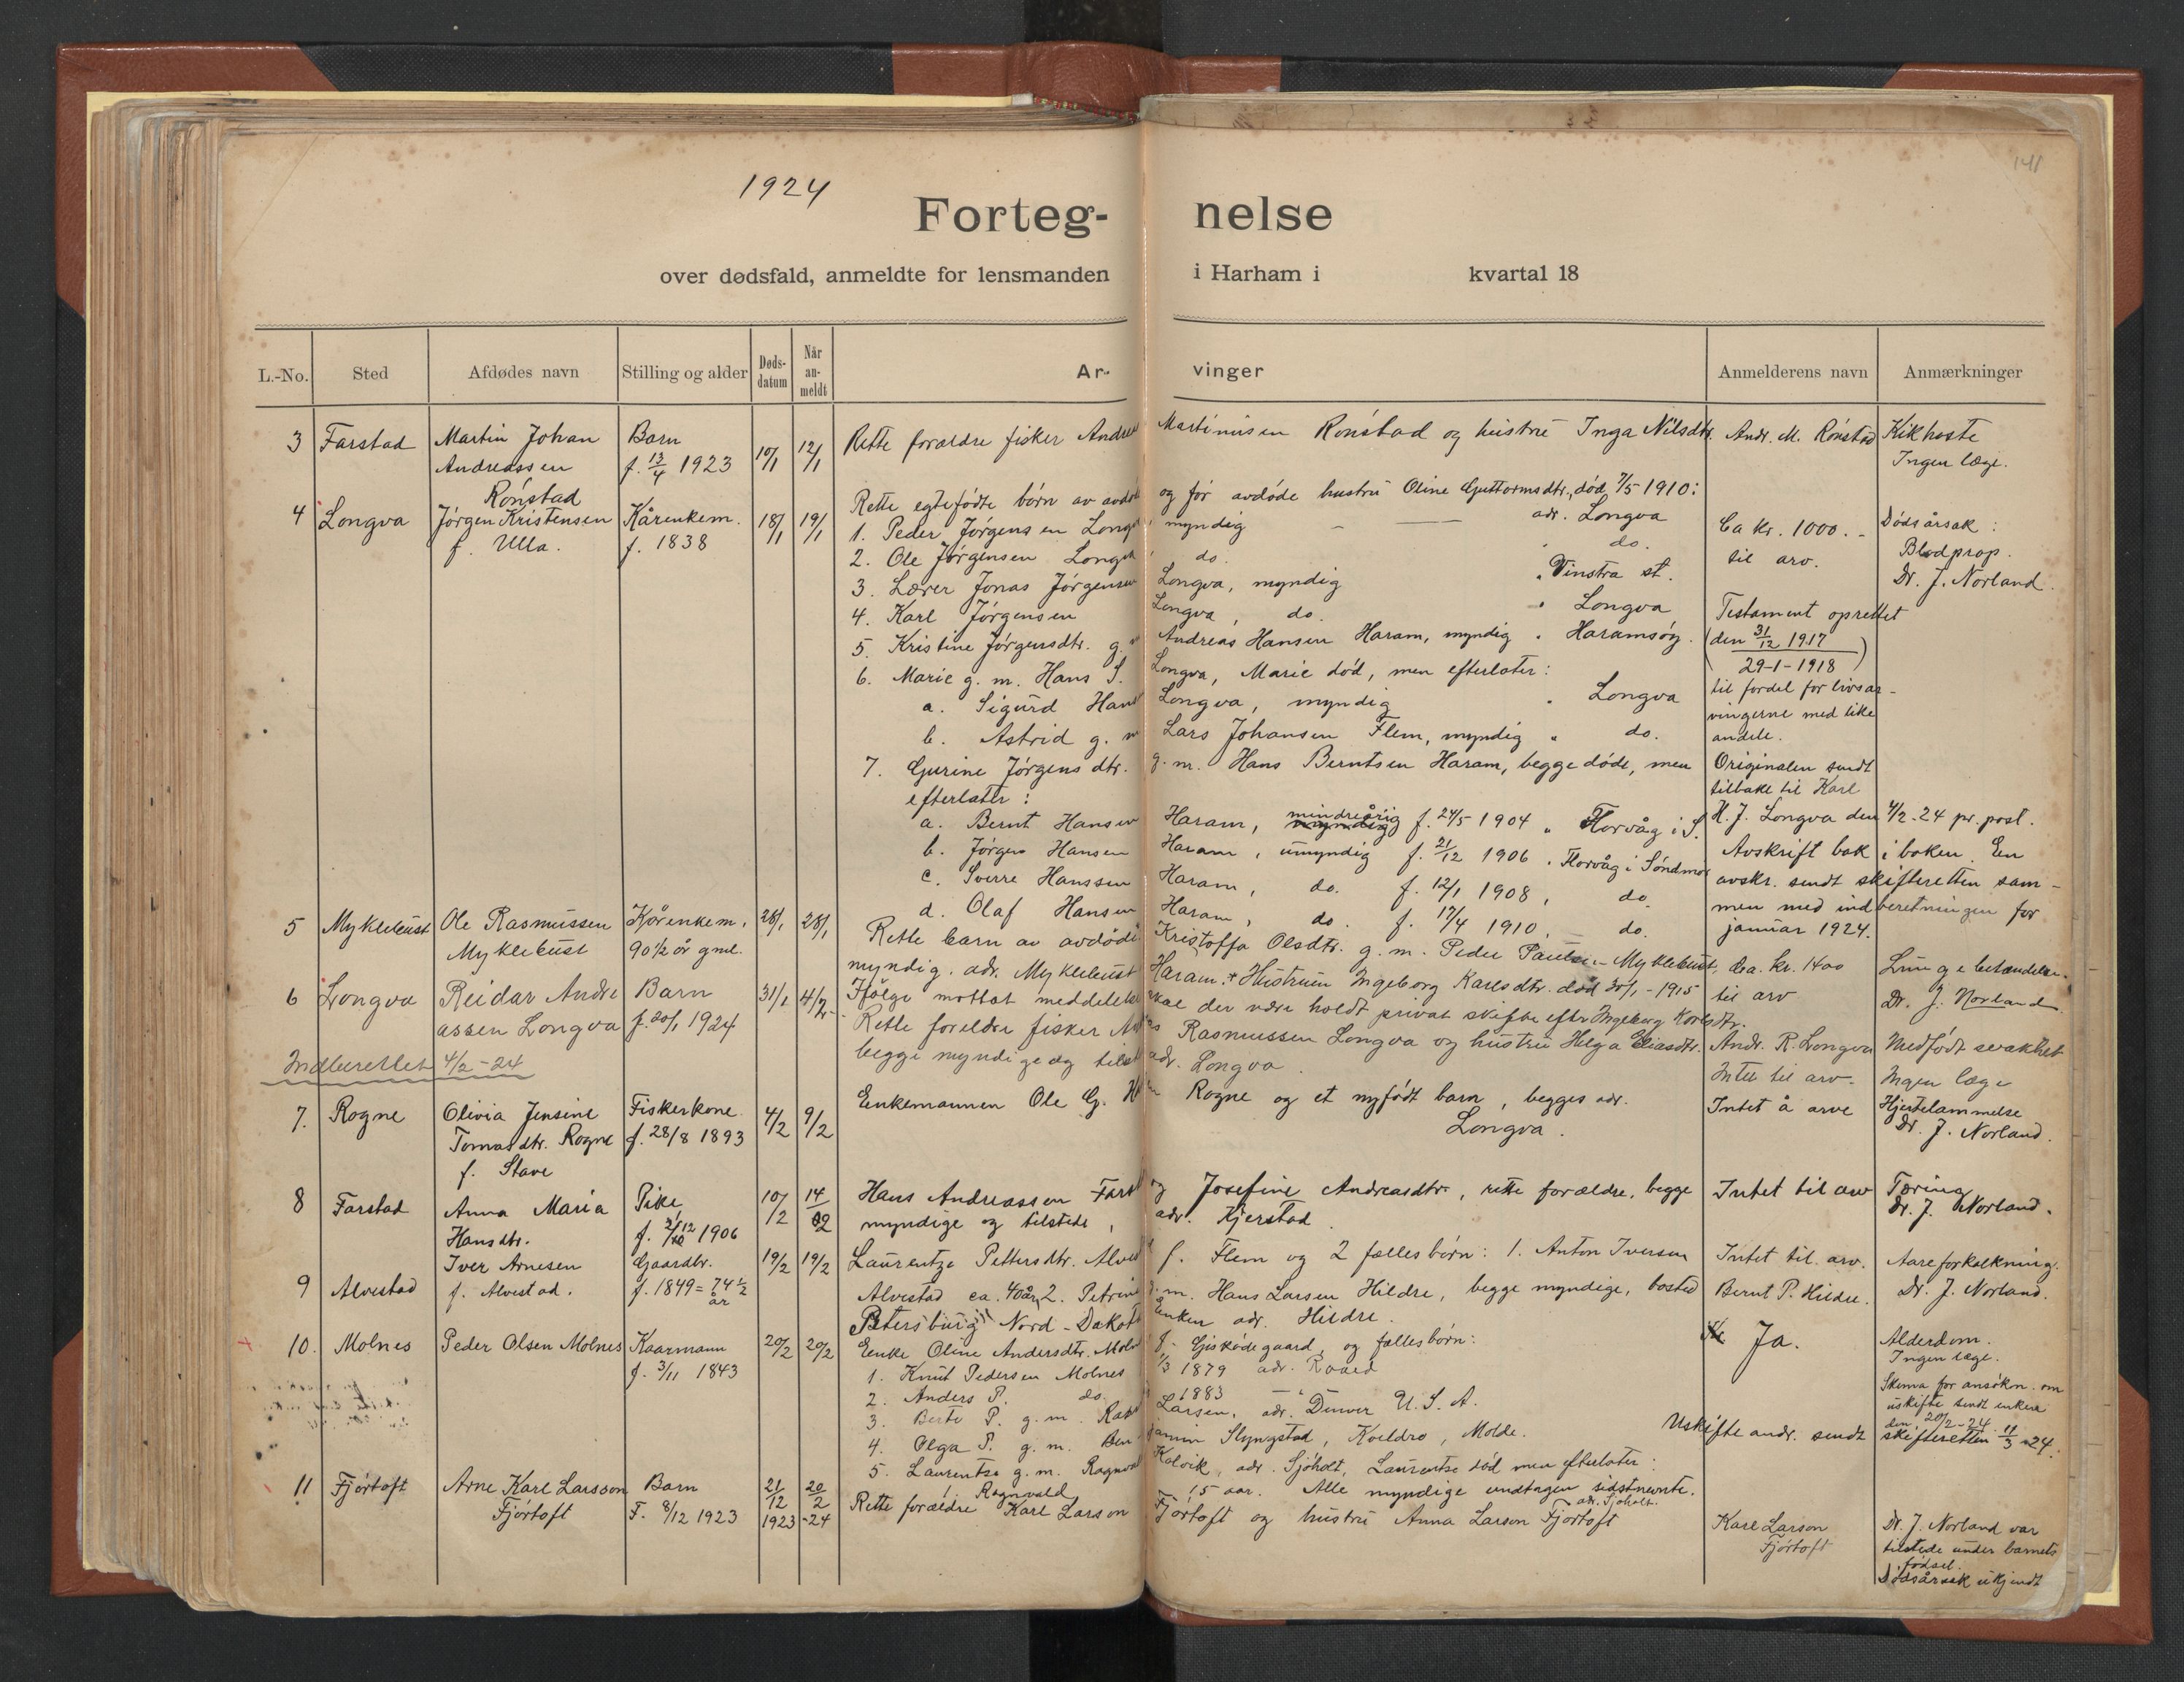 141
1924
Forteg- nelse
over dødsfald, anmeldte for lensmanden i Harham i kvartal 18
L.-No. Sted Afdødes navn Stilling og alder Døds-datum Når an-meldt Ar- vinger Anmelderens navn Anmærkninger
3 Farstad Martin Johan Barn 10/1 12/1 Rette forældre fisker Andreas Martinusen Rønstad og hustru Inga Nilsdtr. Andr. M. Rønstad Kikhoste
Andreassen f. 13/4 1923 Ingen læge.
Rønstad
4 Longva Jørgen Kristensen Kårenkem. 18/1 19/1 Rette egtefødte børn av avdøde og før avdøde hustru Oline Guttormsdtr., død 7/5 1910:
f. Ulla. f. 1838 1. Peder Jørgensen Longva myndig adr. Longva Ca kr. 1000.- Dødsårsak:
2. Ole Jørgensen Longva do. do. til arv. Blodprop.
3. Lærer Jonas Jørgensen Longva, myndig " Vinstra st. Dr. J. Norland.
4. Karl Jørgensen Longva, do. " Longva Testament oprettet
5. Kristine Jørgensdtr. g. m Andreas Hansen Haram, myndig " Haramsøy. (den 31/12 1917
29-1-1918)
6. Marie g. m. Hans S. Longva, Marie død, men efterlater: til fordel for livsar-
a. Sigurd Hans Longva, myndig " Longva vingerne med like
b. Astrid g. m Lars Johansen Flem, myndig " do. andele.
7. Gurine Jørgensdtr. g. m. Hans Berntsen Haram, begge døde, men Originalen sendt
efterlater: tilbake til Karl
a. Bernt Hansen Haram, mindreårig f. 24/5 1904 " Florvåg i S. K. J. Longva den 4/2-24 pr. post.
b. Jørgen Hansen Haram, umyndig f. 21/12 1906 " Florvåg i Søndmør Avskrift bak i boken. En
c. Sverre Hanssen Haram, do. f. 12/1 1908, do. avskr. sendt skifteretten sam-
d. Olaf Hansen Haram, do. f. 17/4 1910, do. men med indberetningen for
januar 1924.
5 Myklebust Ole Rasmussen Kårenkem. 28/1 28/1 Rette barn av avdøde Kristoffa Olsdtr. g. m. Peder Paulsen Myklebust, Ca. kr. 1400 Lungebetændelse.
Myklebust 90 1/2 år gml. myndig. adr. Myklebust Haram. + Hustruen Ingeborg Karlsdtr. død 30/1-1915 til arv Dr. J. Norland
Ifølge mottat meddelelse skal der være holdt privat skifte efter Ingeborg Karlsdtr.
6 Longva Reidar Andre Barn 31/1 4/2 Rette foreldre fisker Andreas Rasmussen Longva og hustru Helga Eliasdtr. Andr. R. Longva Medfødt svakhet
assen Longva f. 20/1 1924 begge myndige og tilstede adr. Longva. Intet til arv. Ingen læge
Indberettet 4/2-24
7. Rogne Olivia Jensine Fiskerkone 4/2 9/2 Enkemannen Ole G. Hansen Rogne og et nyfødt barn, begges adr. Intet å arve Hjertelammelse
Tomasdtr. Rogne f. 28/8 1893 Longva. Dr. J. Norland.
f. Stave
8 Farstad Anna Maria Pike, 10/2 14/02 Hans Andreassen Farstad og Josefine Andreasdtr., rette forældre, begge Intet til arv Tæring
Hansdtr. f. 2/12 1906 myndige og tilstede, adr. Kjerstad. Dr. J. Norland.
9 Alvestad Iver Arnesen Gaardbr. 19/2 19/2 Laurentze Pettersdtr. Alvestad f. Flem og 2 fællesbørn: 1. Anton Iversen Intet til arv. Aareforkalkning.
f. Alvestad. f. 1849 = 74 1/2 år Alvestad ca. 40 år, 2. Petrine g. m. Hans Larsen Hildre, begge myndige, bosted Bernt P. Hildre. Dr. J. Norland.
Petersburg Nord-Dakota Enken adr. Hildre.
10. Molnes Peder Olsen Molnes Kaarmann 20/2 20/2 Enke Oline Andersdtr. Molnes f. Giskødegaard, og fællesbørn: Ja. Alderdom.
f. 3/11 1843 1. Knut Pedersen Molnes 1/3 1879 adr. Roald Ingen læge.
2. Anders P. do. 1883 Skema for ansøkn. om
3. Berte P. g. m. Larsen, adr. Denver U. S. A. uskifte sendt enken
4. Olga P. g. m. Benjamin Slyngstad, Kveldro, Molde. den 20/2-24
Uskifte andr. sendt skifteretten 11/3-24.
5. Laurentse g. m. Ragnvald Kalvik, adr. Sjøholt, Laurentse død men efterlater:
Ragnvald 15 aar. Alle myndige undtagen sidstnevnte.
adr. Sjøholt.
11 Fjørtoft Arne Karl Larsson Barn 21/12 1923 20/2-24 Rette forældre Karl Larson Fjørtoft og hustru Anna Larson Fjørtoft Karl Larson Dr. J. Norland var
Fjørtoft F. 8/12 1923 Fjørtoft tilstede under barnets
fødsel.
Dødsårsak ukjendt